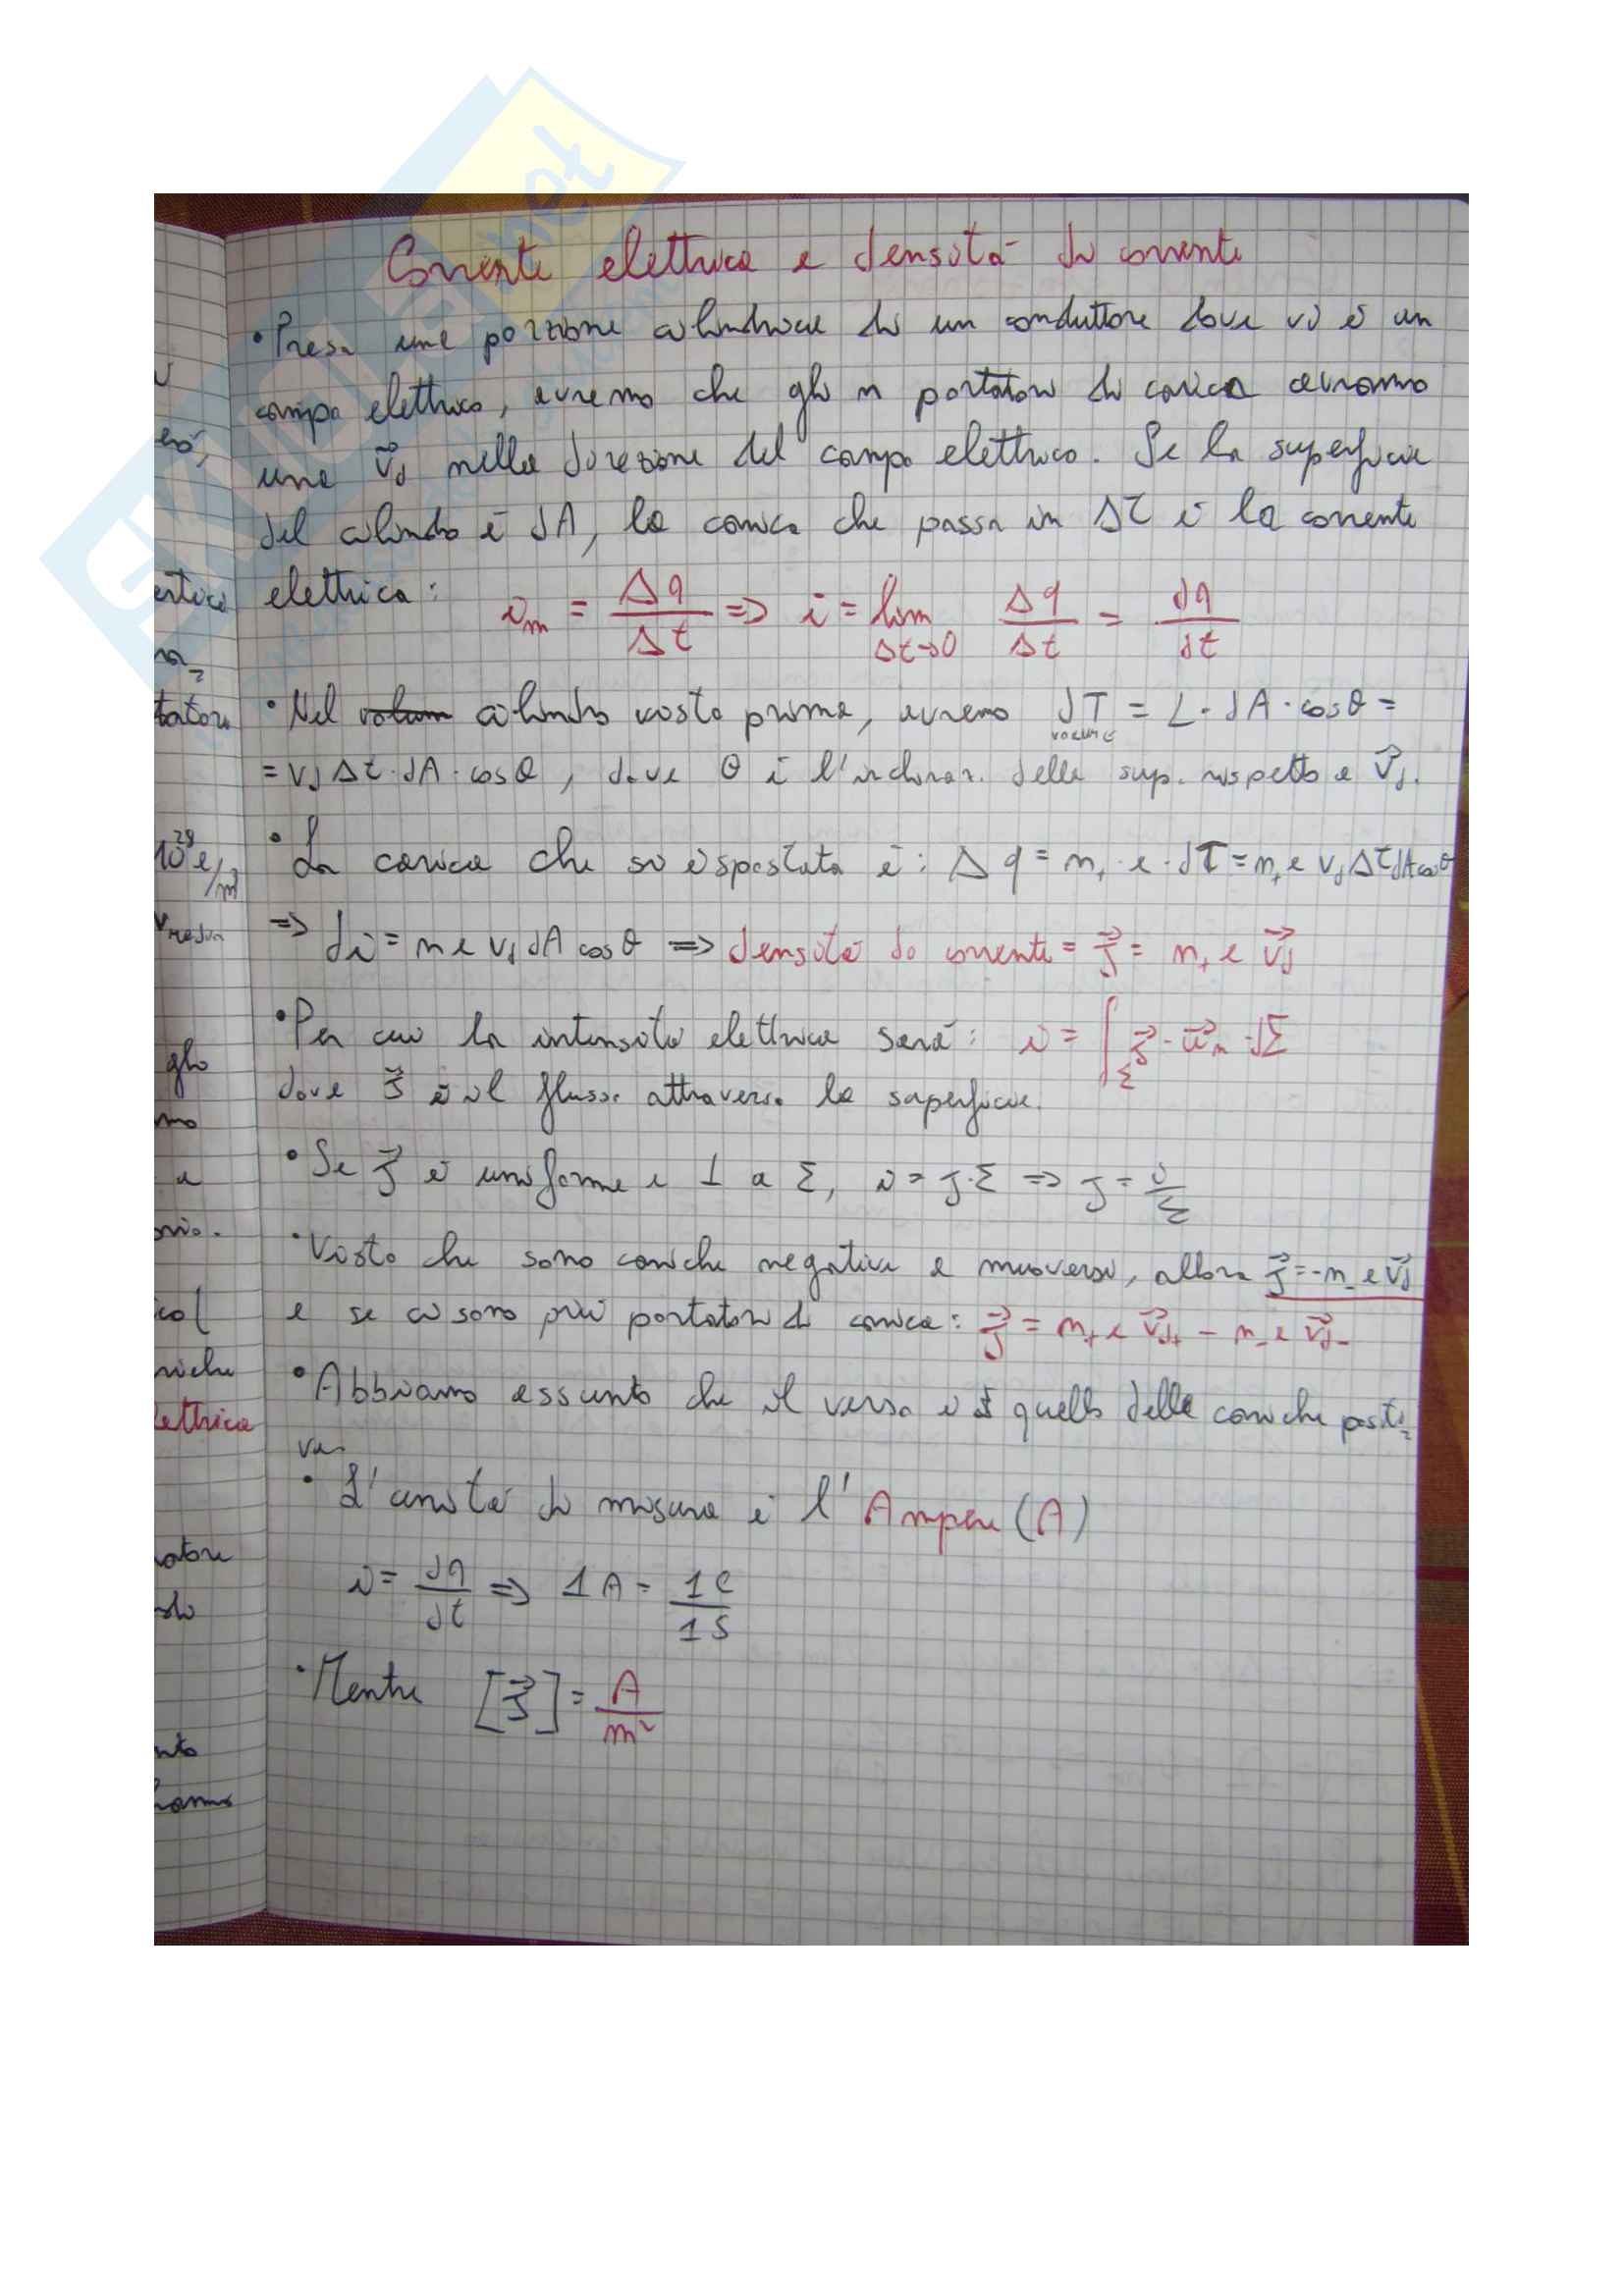 Corrente elettrica e densità di corrente
• Presa una porzione cilindrica di un conduttore dove vi è un
campo elettrico, avremo che gli n portatori di carica avranno
una v⃗d nella direzione del campo elettrico. Se la superficie
del cilindro è dA, la carica che passa in Δt è la corrente
elettrica:
im = Δq/Δt => i = lim Δt→0 Δq/Δt = dq/dt
• Nel cilindro visto prima, avremo dτ = L · dA · cosθ =
volume
= vd Δt · dA · cosθ, dove θ è l'inclinaz. della sup. rispetto a v⃗d.
• La carica che si è spostata è: Δq = n+ · e · dτ = n+ e vd Δt dA cosθ
=> di = n e vd dA cosθ => densità di corrente = j⃗ = n+ e v⃗d
• Per cui la intensità elettrica sarà: i = ∫Σ j⃗ · u⃗n · dΣ
dove j⃗ è il flusso attraverso la superficie.
• Se j⃗ è uniforme e ⊥ a Σ, i = j·Σ => j = i/Σ
• Visto che sono cariche negative a muoversi, allora j⃗ = -n- e v⃗d
e se ci sono più portatori di carica: j⃗ = n+ e v⃗d+ - n- e v⃗d-
• Abbiamo assunto che il verso è quello delle cariche positi=
ve.
• L'unità di misura è l'Ampere (A)
i = dq/dt => 1A = 1C/1S
• Mentre [j⃗] = A/m²
ertici
tatori
10²⁸ e/m³
gli
lettrica